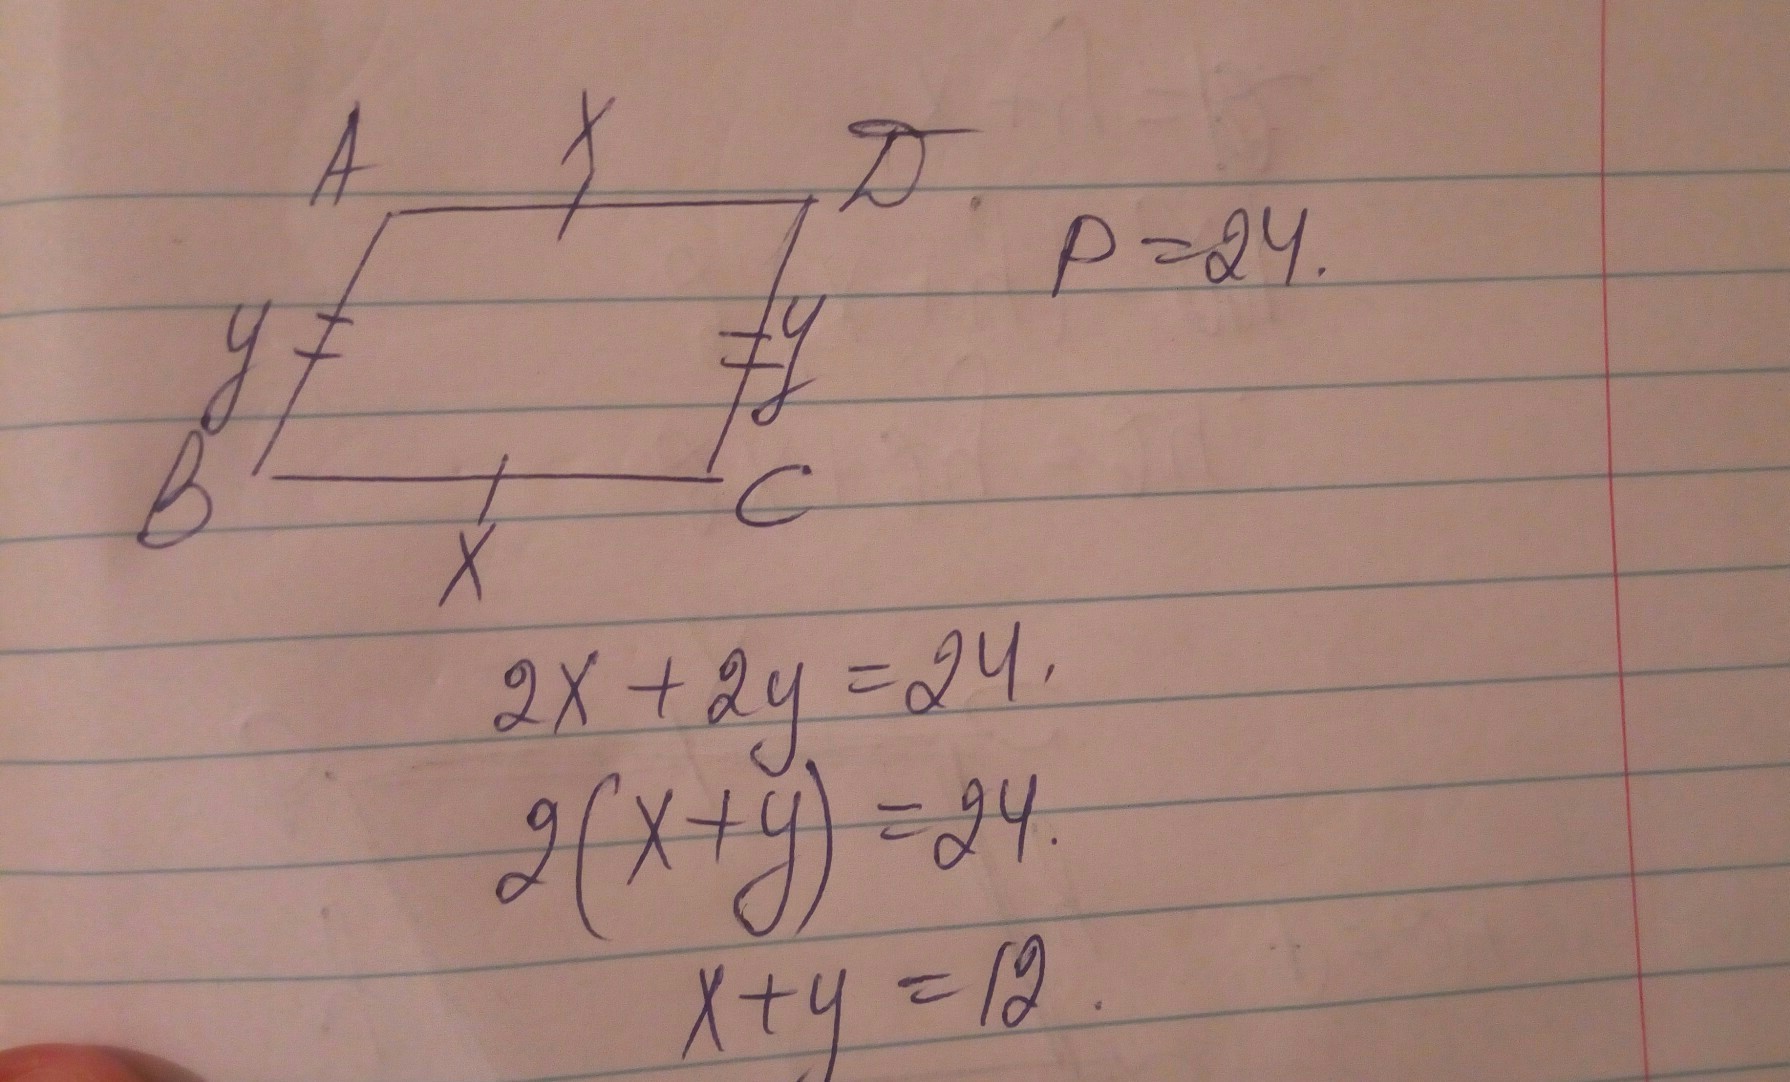 A X D
P = 24.
y y
B C
X
2x + 2y = 24.
2(x+y) = 24.
x+y = 12.